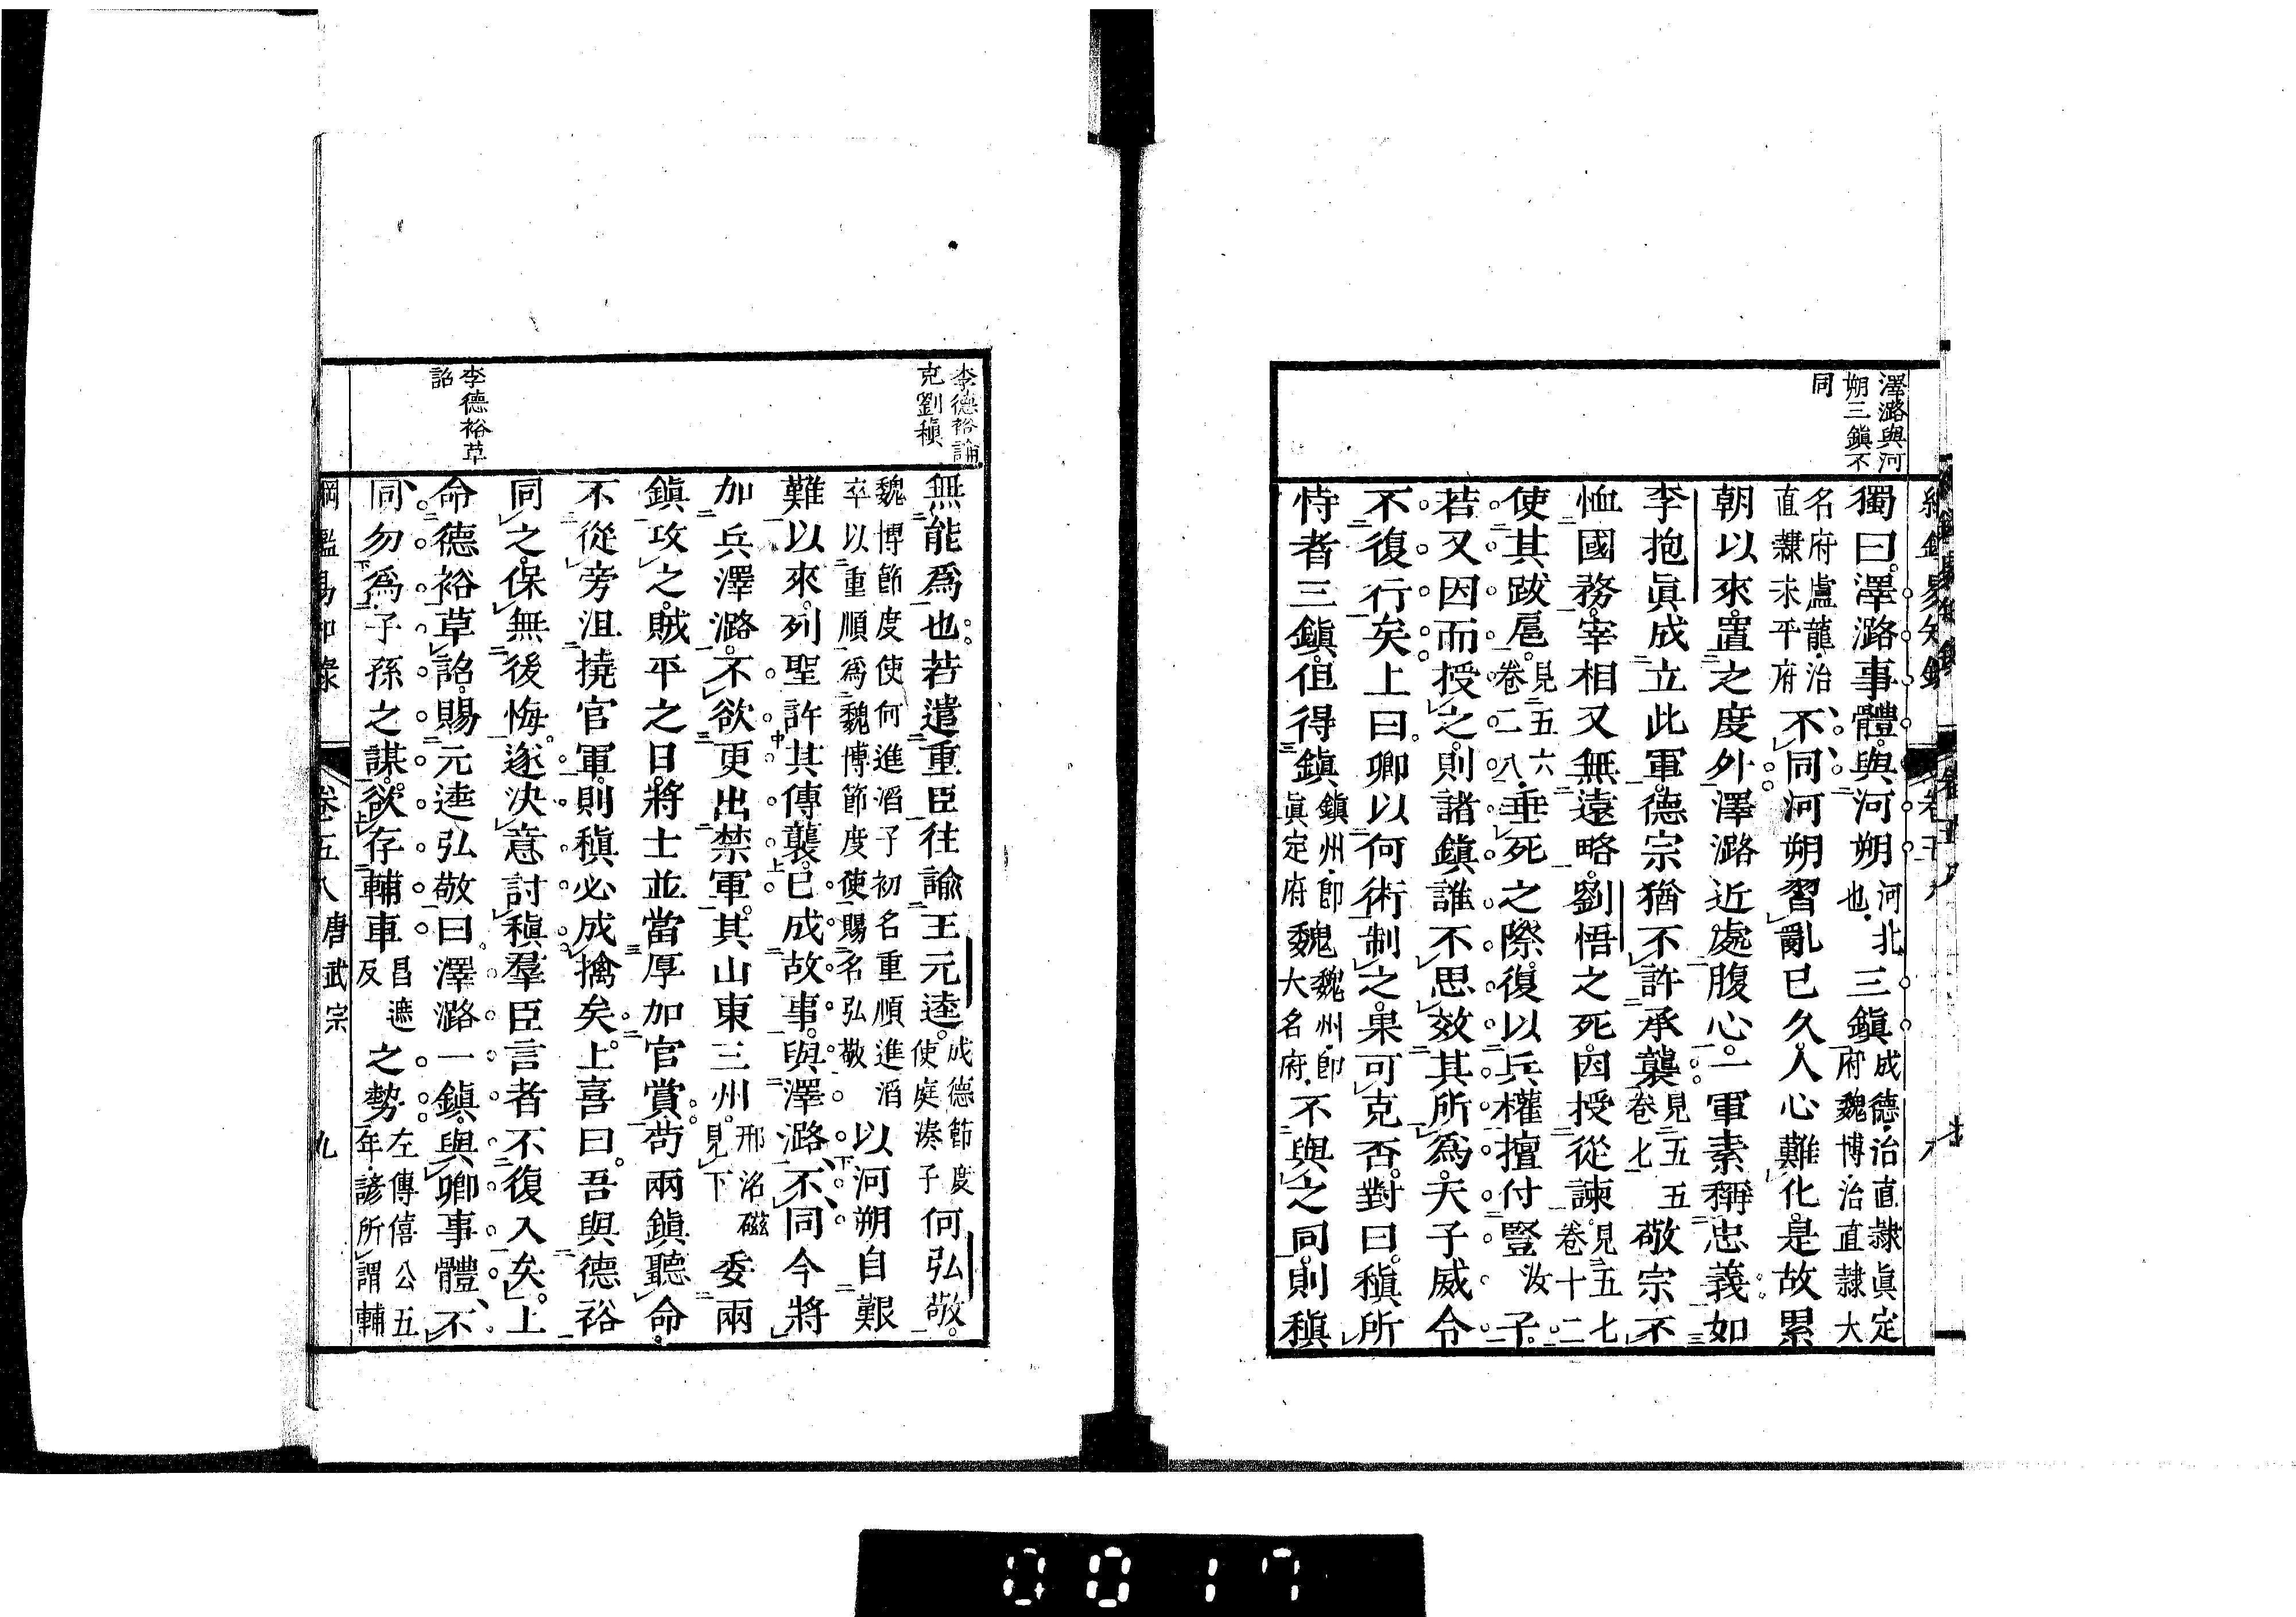 澤潞與河
朔三鎭不
同
獨曰。澤潞事體。與河朔河北也。三鎭成德。治直隸眞定府魏博。治直隸大
名府盧龍。治直隸永平府不同。河朔習亂已久。人心難化。是故累
朝以來。置之度外。澤潞近處腹心。一軍素稱忠義。如
李抱眞成立此軍。德宗猶不許承襲。見五五卷七敬宗不
恤國務。宰相又無遠略。劉悟之死。因授從諫。見五七卷十二
使其跋扈。見五六卷二八。垂死之際。復以兵權擅付豎汝子。
若又因而授之。則諸鎭誰不思效其所爲。天子威令
不復行矣。上曰。卿以何術制之。果可克否。對曰。稹所
恃者三鎭。但得鎭鎭州。卽眞定府魏魏州。卽大名府。不與之同。則稹
李德裕論
克劉稹
無能爲也。若遣重臣往諭王元逵。成德節度使庭湊子何弘敬。
魏博節度使何進滔子初名重順進滔卒以重順爲魏博節度使賜名弘敬以河朔自艱
難以來。列聖許其傳襲。已成故事。與澤潞不同。今將
加兵澤潞。不欲更出禁軍。其山東三州。邢洺磁見下委兩
鎭攻之。賊平之日。將士並當厚加官賞。苟兩鎭聽命。
不從旁沮撓官軍。則稹必成擒矣。上喜曰。吾與德裕
同之。保無後悔。遂決意討稹。羣臣言者不復入矣。上
李德裕草
詔
命德裕草詔。賜元逵弘敬曰。澤潞一鎭。與卿事體不
同。勿爲子孫之謀。欲存輔車昌遮反之勢。左傳僖公五年。諺所謂輔
綱鑑易知錄 卷五八 唐武宗 九